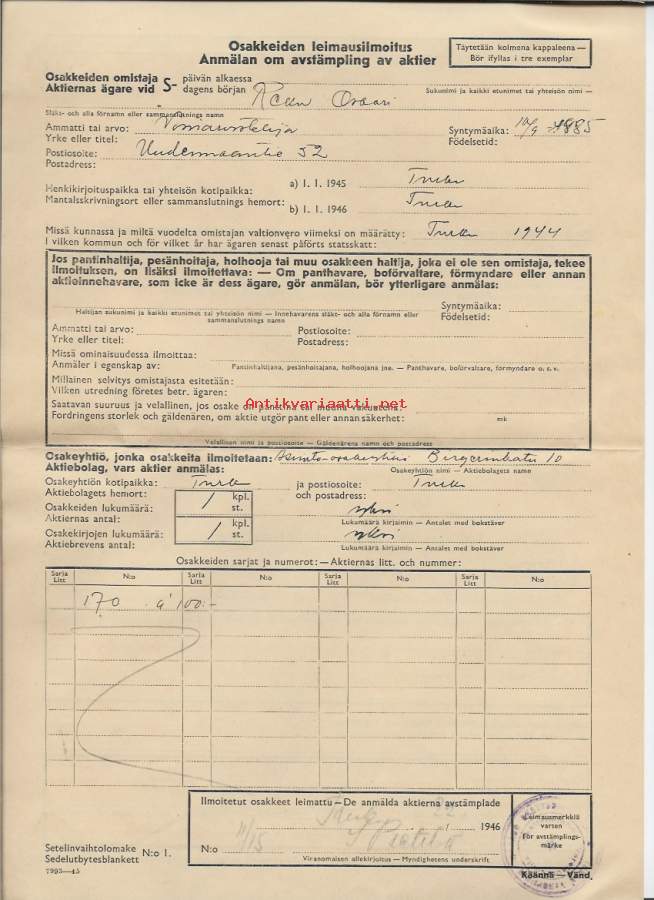 Osakkeiden leimausilmoitus
Anmälan om avstämpling av aktier
Täytetään kolmena kappaleena —
Bör ifyllas i tre exemplar
Osakkeiden omistaja S- päivän alkaessa
Aktiernas ägare vid dagens början
Oskari
Sukunimi ja kaikki etunimet tai yhteisön nimi —
Släkt- och alla förnamn eller sammanslutnings namn
Ammatti tai arvo:
Yrke eller titel:
Syntymäaika: 1885
Födelsetid:
Postiosoite: 52
Postadress:
Henkikirjoituspaikka tai yhteisön kotipaikka: a) 1. 1. 1945 Turku
Mantalsskrivningsort eller sammanslutnings hemort: b) 1. 1. 1946 Turku
Missä kunnassa ja miltä vuodelta omistajan valtionvero viimeksi on määrätty: Turku 1944
I vilken kommun och för vilket år har ägaren senast påförts statsskatt:
Jos pantinhaltija, pesänhoitaja, holhooja tai muu osakkeen haltija, joka ei ole sen omistaja, tekee
ilmoituksen, on lisäksi ilmoitettava: — Om panthavare, boförvaltare, förmyndare eller annan
aktieinnehavare, som icke är dess ägare, gör anmälan, bör ytterligare anmälas:
Haltijan sukunimi ja kaikki etunimet tai yhteisön nimi — Innehavarens släkt- och alla förnamn eller
sammanslutnings namn
Syntymäaika:
Födelsetid:
Ammatti tai arvo: Postiosoite:
Yrke eller titel: Postadress:
Missä ominaisuudessa ilmoittaa:
Anmäler i egenskap av:
Pantinhaltijana, pesänhoitajana, holhoojana jne. — Panthavare, boförvaltare, förmyndare o. s. v.
Millainen selvitys omistajasta esitetään:
Vilken utredning företes betr. ägaren:
Saatavan suuruus ja velallinen, jos osake on panttina tai muuna vakuutena:
Antikvariaatti.net
Fordringens storlek och gäldenären, om aktie utgör pant eller annan säkerhet: mk
Velallisen nimi ja postiosoite — Gäldenärens namn och postadress
Osakeyhtiö, jonka osakkeita ilmoitetaan: 10
Aktiebolag, vars aktier anmälas:
Osakeyhtiön nimi — Aktiebolagets namn
Osakeyhtiön kotipaikka: Turku ja postiosoite: Turku
Aktiebolagets hemort: och postadress:
Osakkeiden lukumäärä: 1 kpl. yksi
Aktiernas antal: st.
Lukumäärä kirjaimin — Antalet med bokstäver
Osakekirjojen lukumäärä: 1 kpl. yksi
Aktiebrevens antal: st.
Lukumäärä kirjaimin — Antalet med bokstäver
Osakkeiden sarjat ja numerot: — Aktiernas litt. och nummer:
Sarja Litt N:o Sarja Litt N:o Sarja Litt N:o Sarja Litt N:o
170 á 100:-
Ilmoitetut osakkeet leimattu — De anmälda aktierna avstämplade
1946
N:o
Viranomaisen allekirjoitus — Myndighetens underskrift
Leimausmerkkiä
varten
För avstämplings-
märke
Setelinvaihtolomake N:o 1.
Sedelutbytesblankett
7993—45
Käännä — Vänd.